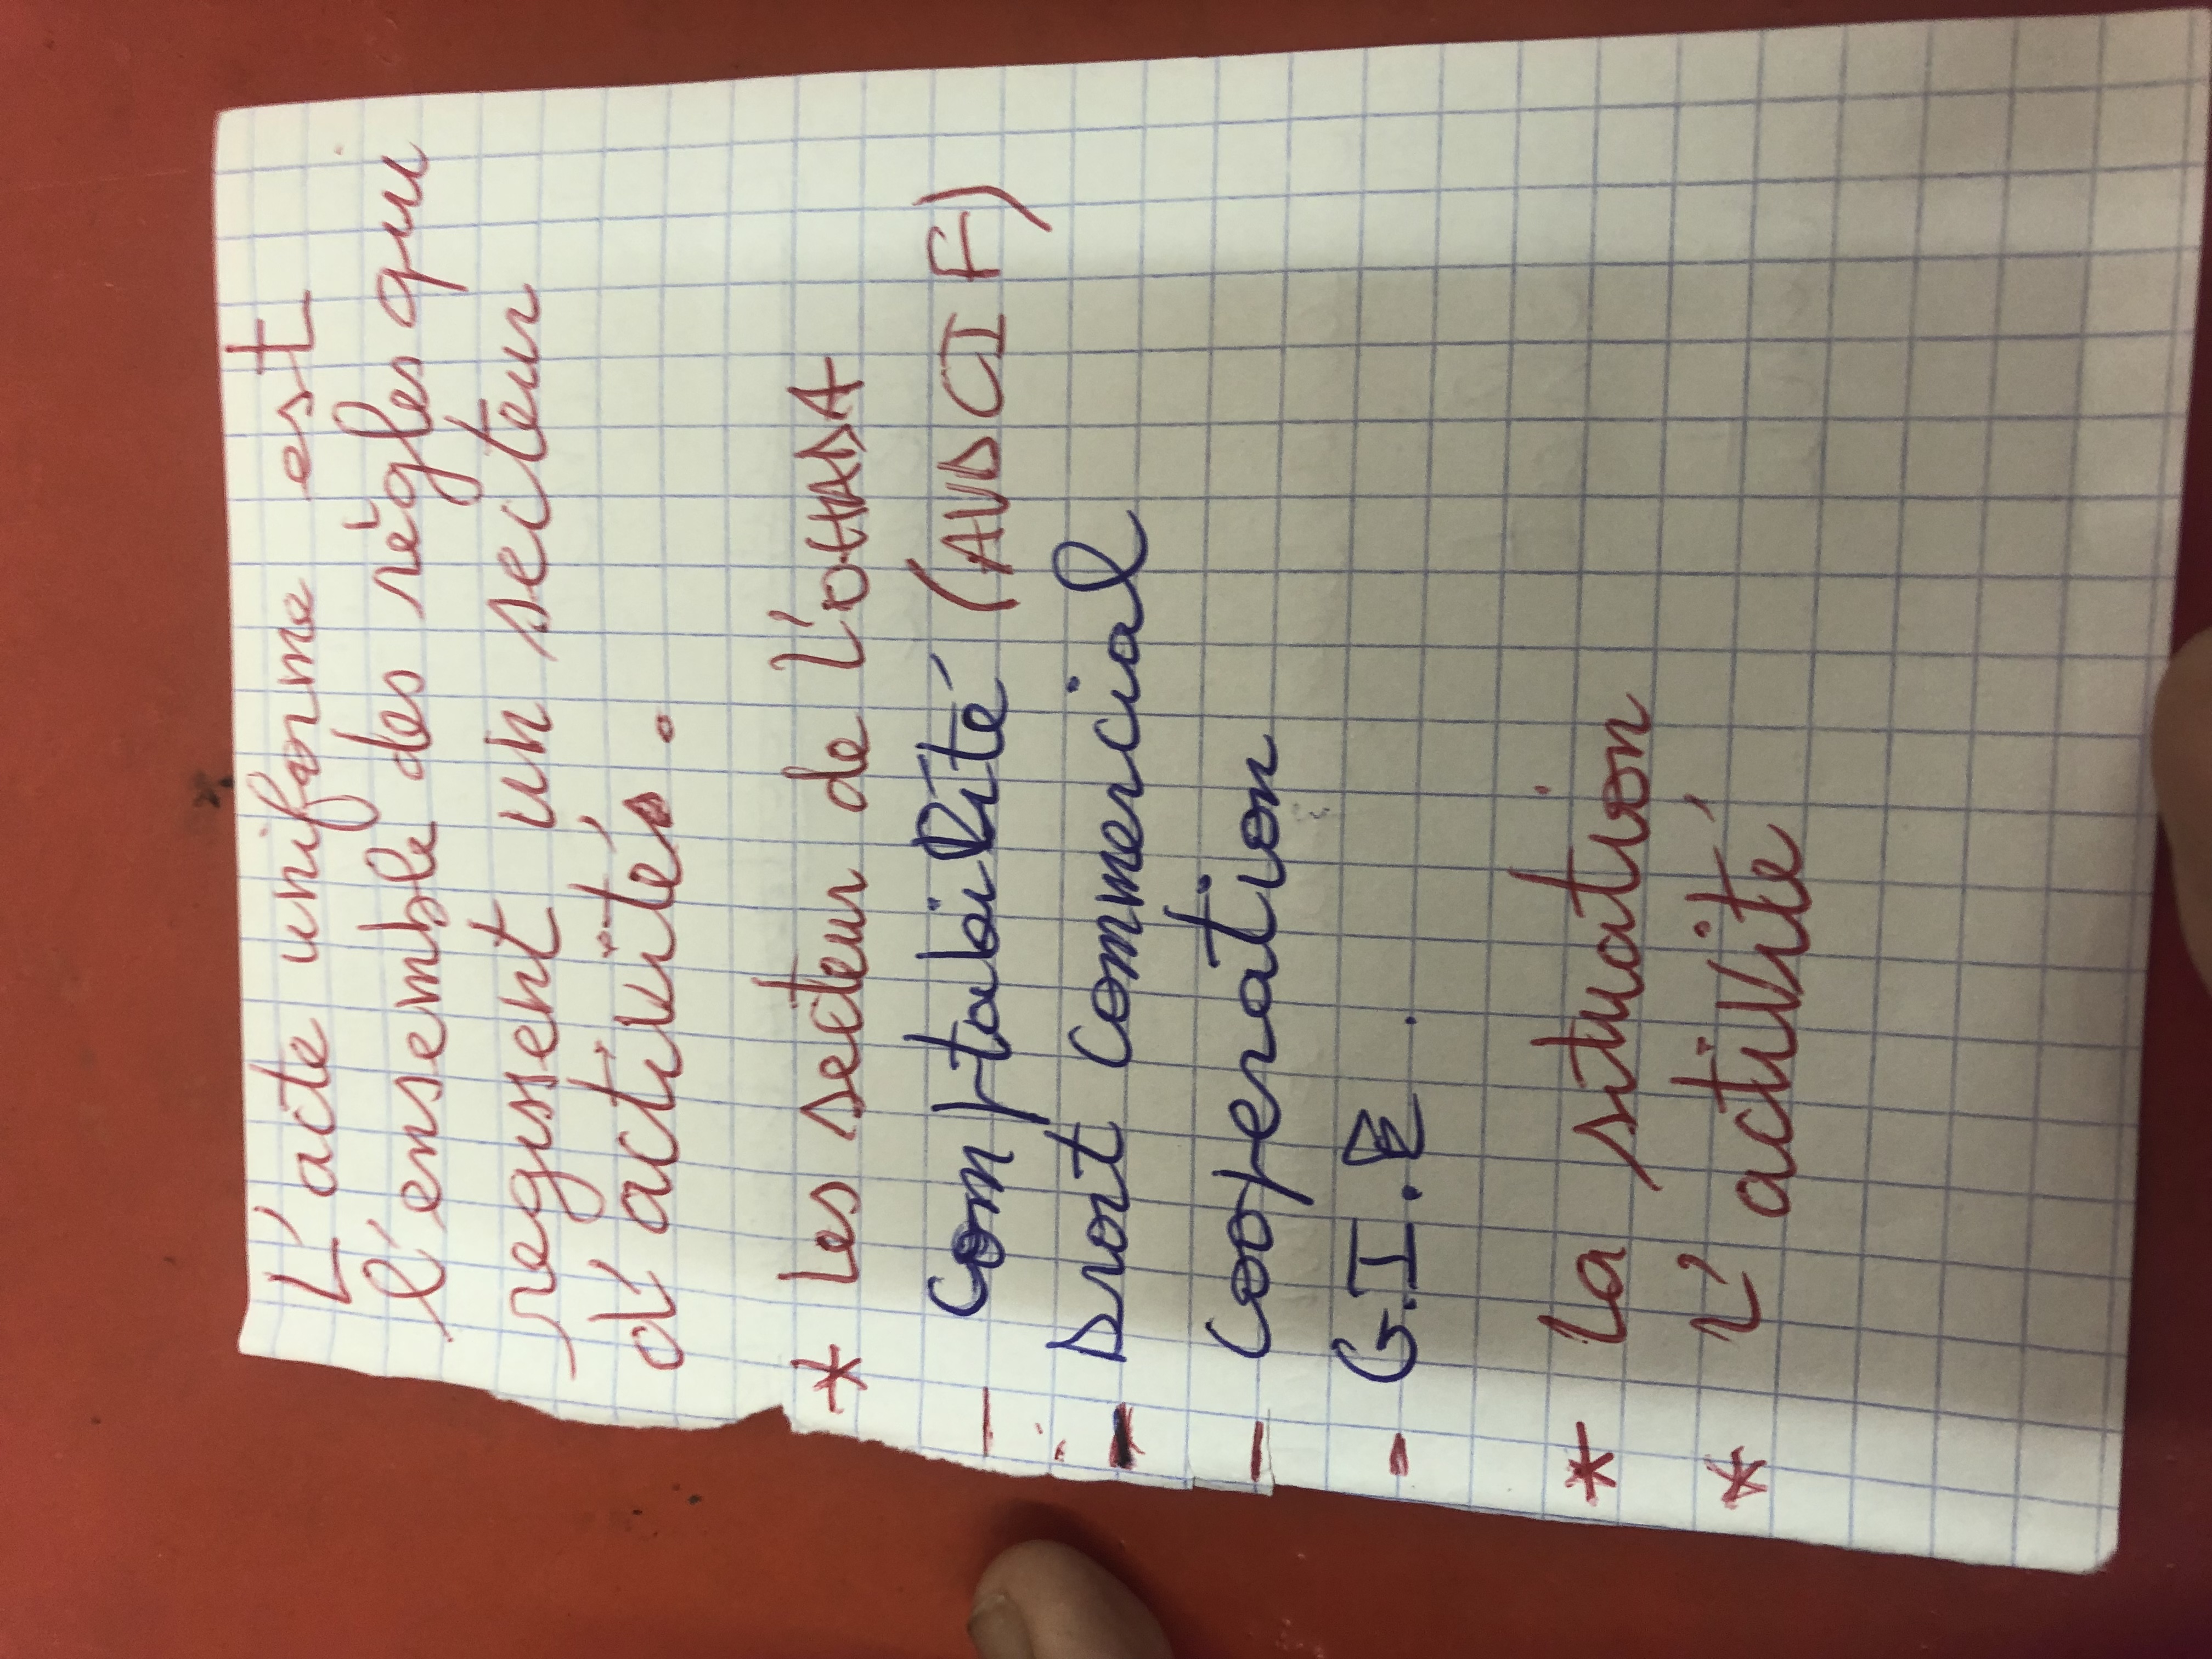 L'acte uniforme est
l'ensemble des règles qui
regissent un secteur
d'activités.
* Les secteur de L'OHADA
- Comptabilité (AUDCIF)
- Droit commercial
- Cooperation
- G.I.E.
* La situation
* L'activité